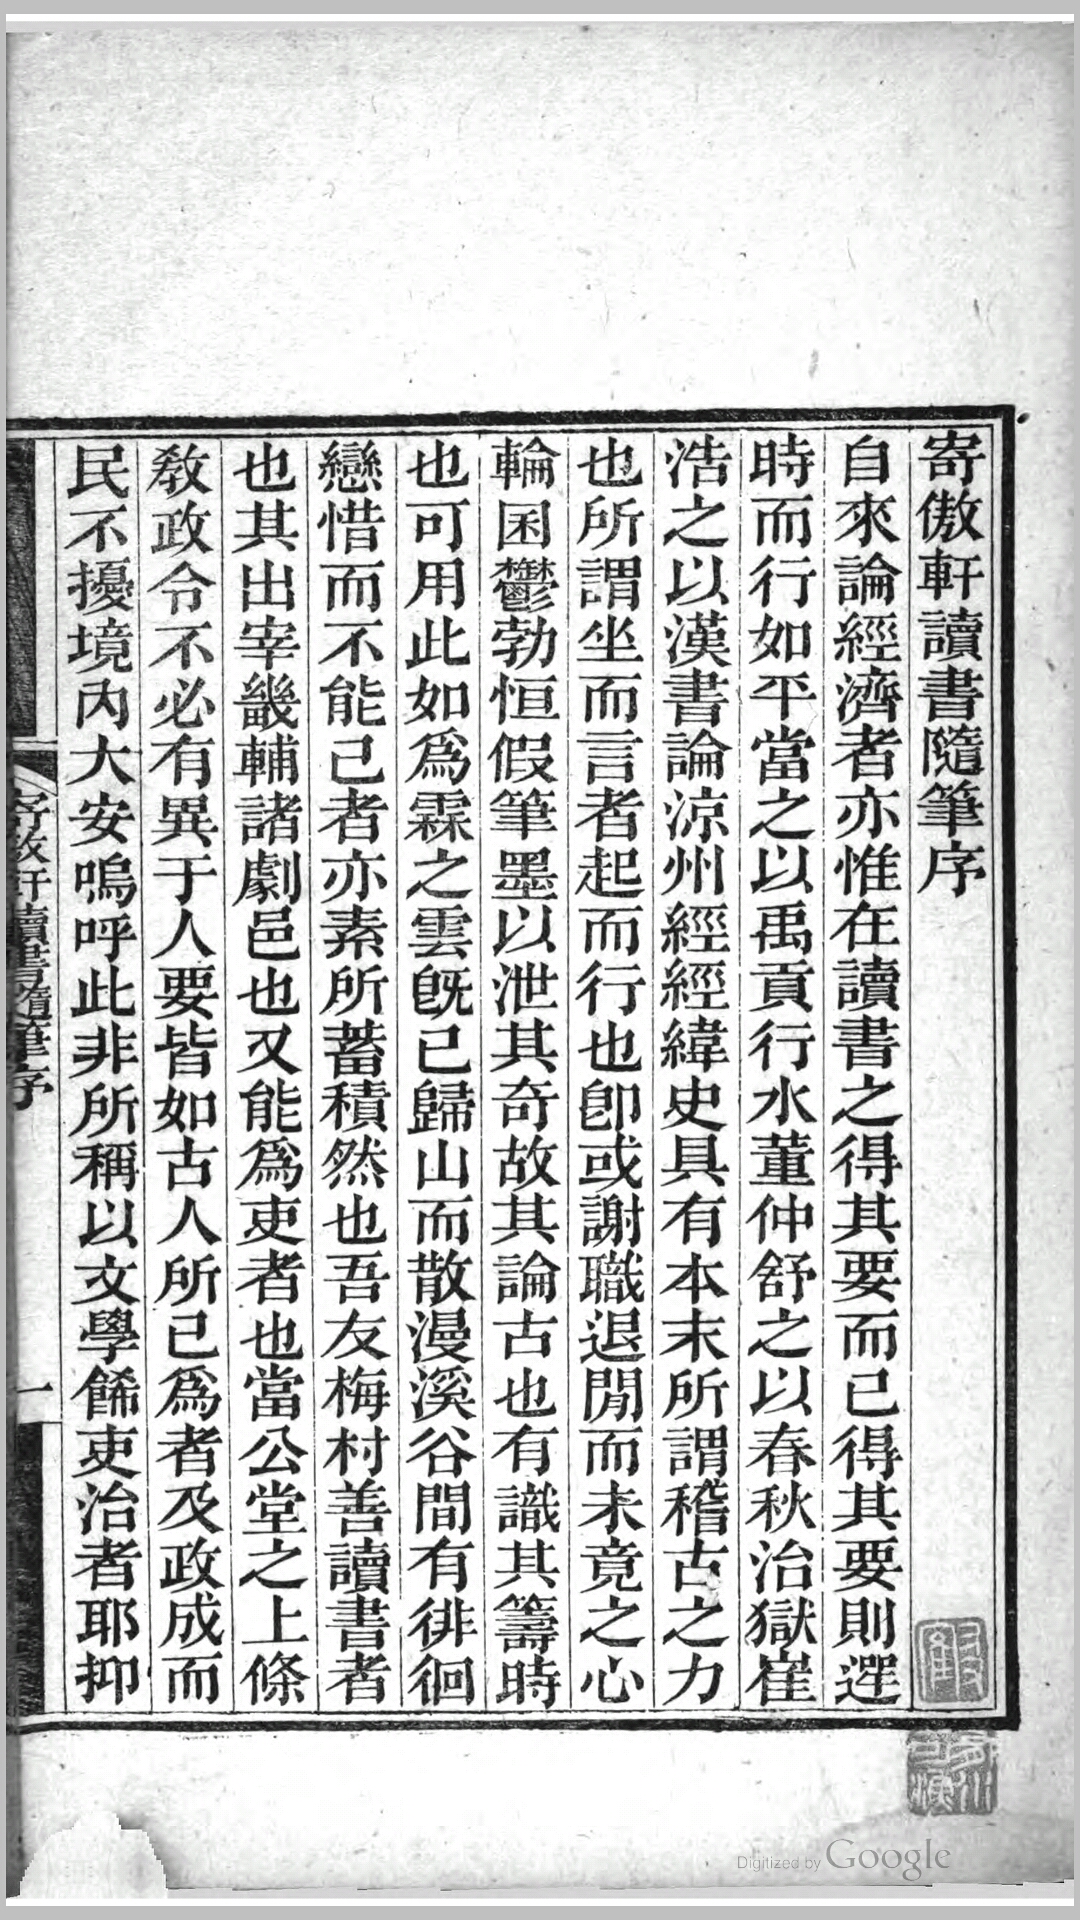 寄傲軒讀書隨筆序
自來論經濟者亦惟在讀書之得其要而已得其要則選
時而行如平當之以禹貢行水董仲舒之以春秋治獄崔
浩之以漢書論涼州經經緯史具有本末所謂稽古之力
也所謂坐而言者起而行也卽或謝職退閒而未竟之心
輪囷鬱勃恒假筆墨以泄其奇故其論古也有識其籌時
也可用此如爲霖之雲旣已歸山而散漫溪谷間有徘徊
戀惜而不能已者亦素所蓄積然也吾友梅村善讀書者
也其出宰畿輔諸劇邑也又能爲吏者也當公堂之上條
敎政令不必有異于人要皆如古人所已爲者及政成而
民不擾境內大安嗚呼此非所稱以文學餙吏治者耶抑
寄傲軒讀書隨筆序
一
Digitized by Google